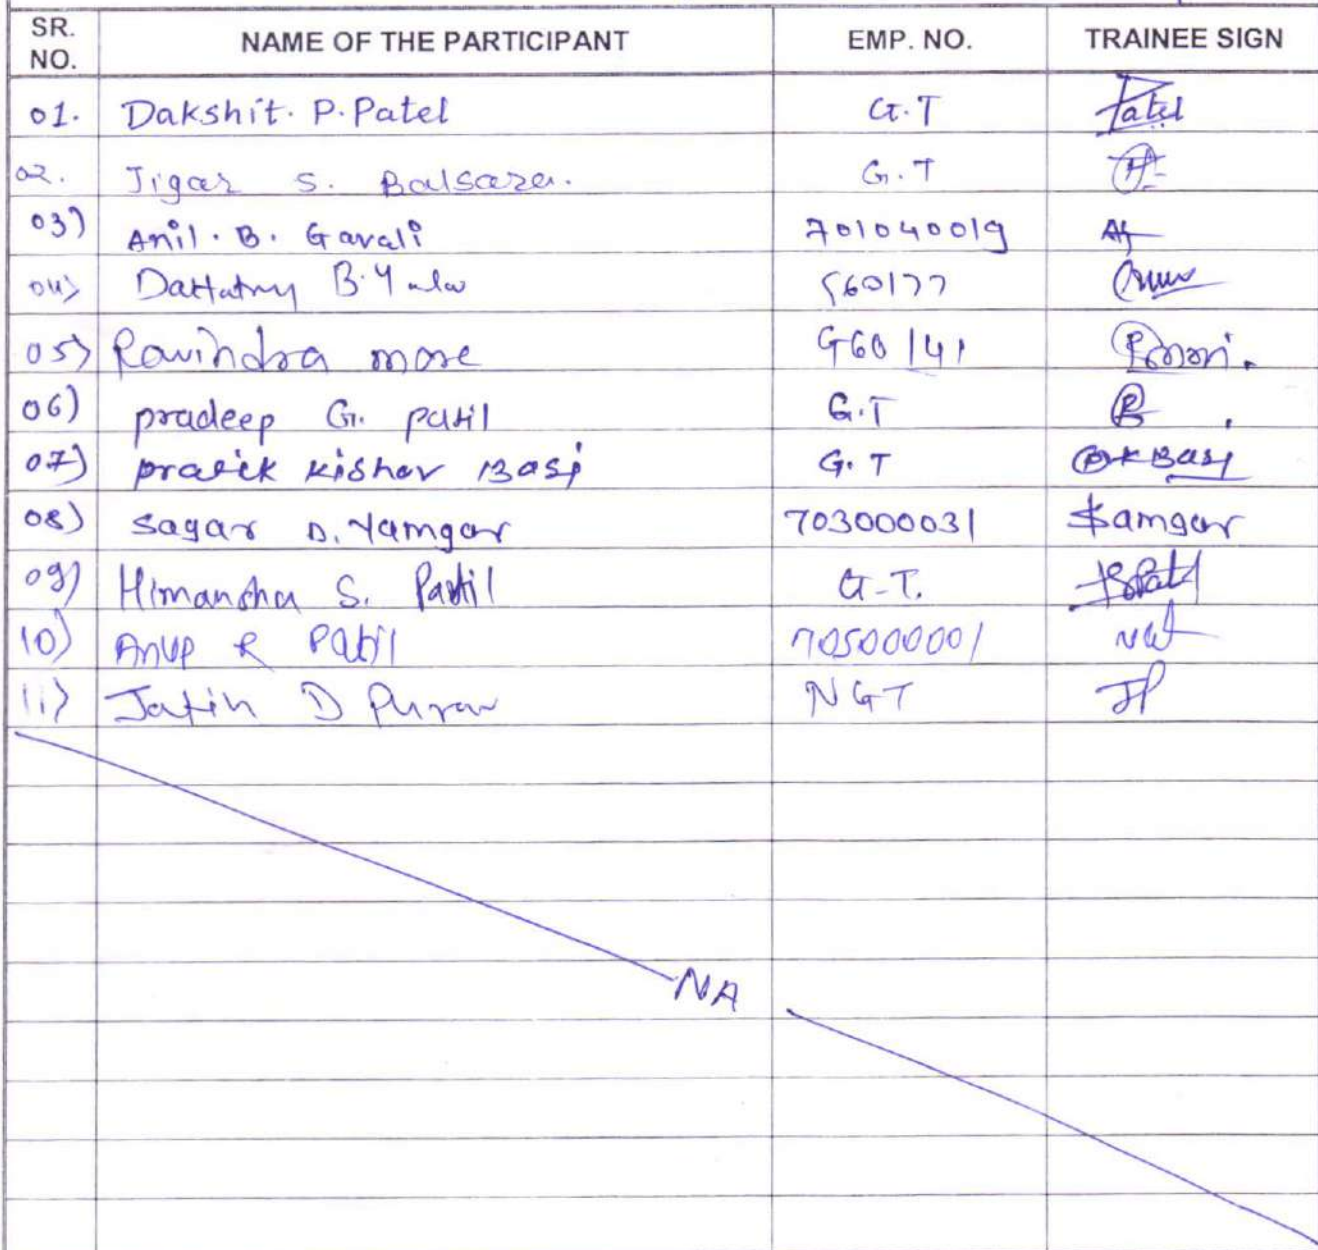 SR. NO. NAME OF THE PARTICIPANT EMP. NO. TRAINEE SIGN
01. Dakshit. P. Patel G.T Patel
02. Jigar S. Balsara. G.T
03) Anil. B. Gavali 701040019
04) Dattatray B. 560177
05) Ravindra more G60141
06) pradeep G. patil G.T
07) pratik kishor Basi G.T Basi
08) Sagar D. Yamgar 70300031 Samgar
09) Himanshu S. Patil G.T.
10) Anup R Patil 70500001
11) Jatin D NGT JP
NA